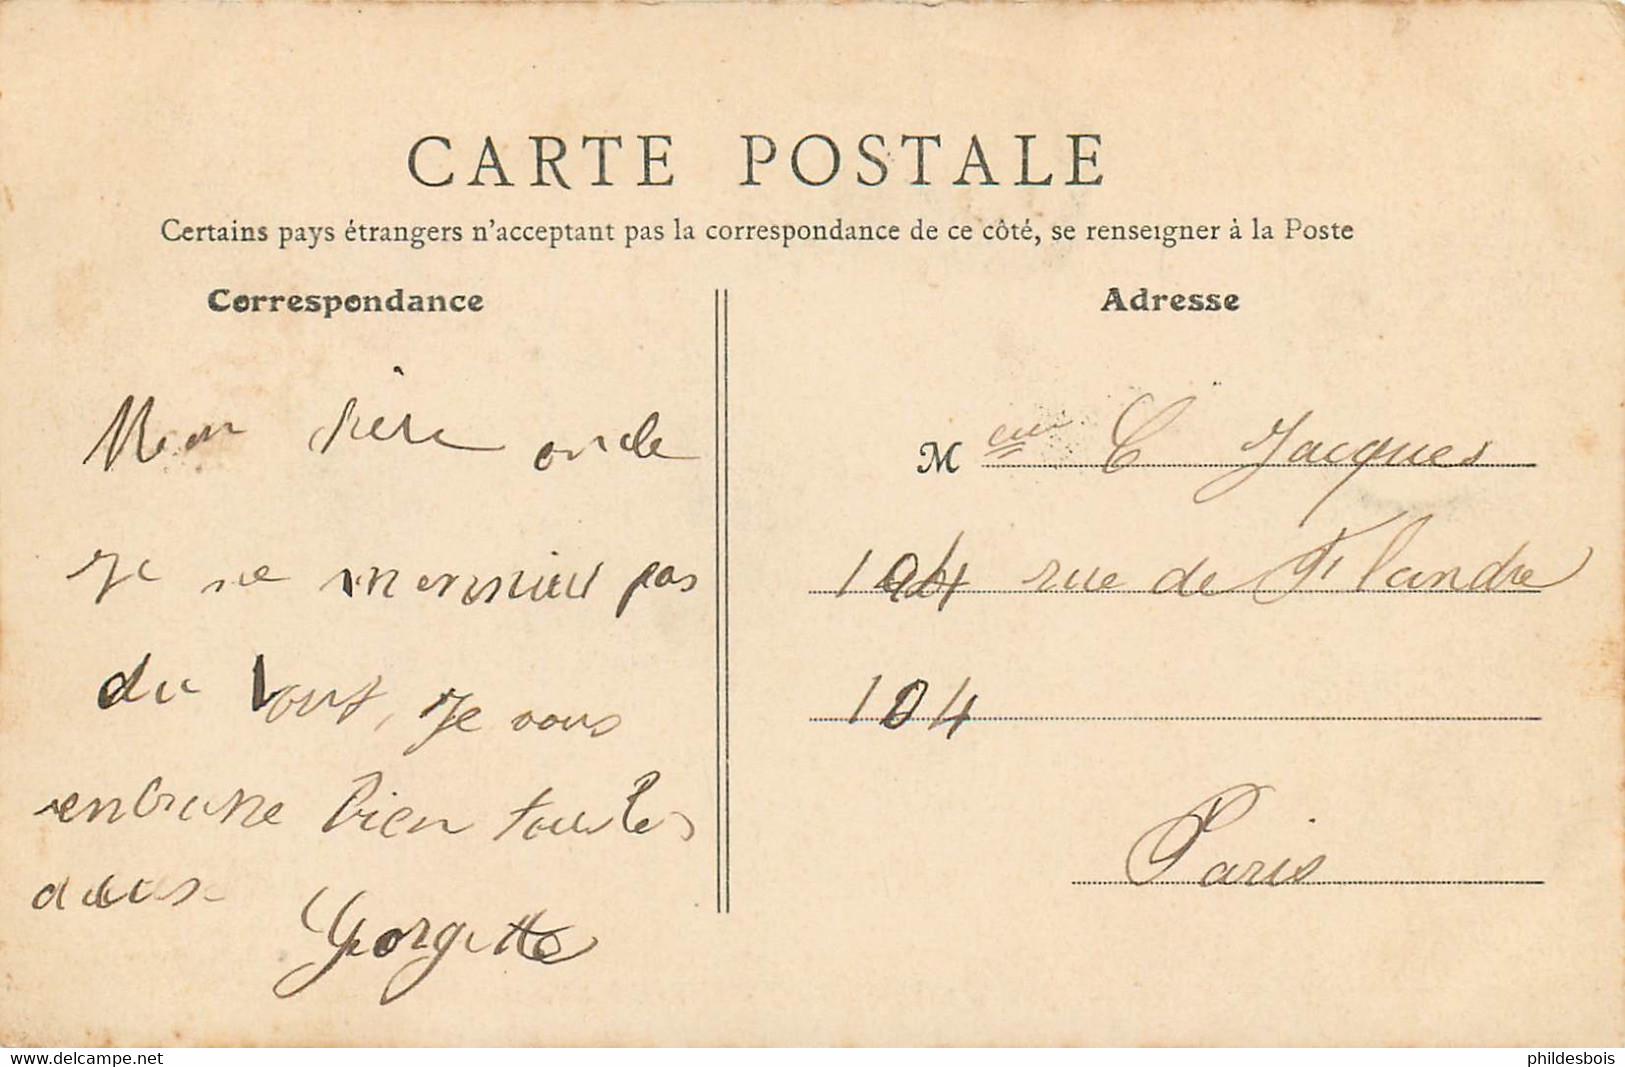 CARTE POSTALE
Certains pays étrangers n'acceptant pas la correspondance de ce côté, se renseigner à la Poste
Correspondance
Mon chère oncle
Je ne m'ennuie pas
du tout, je vous
embrasse bien tous les
deux.
Georgette
Adresse
M C Jacques
104 rue de Flandre
104
Paris
www.delcampe.net
phildesbois